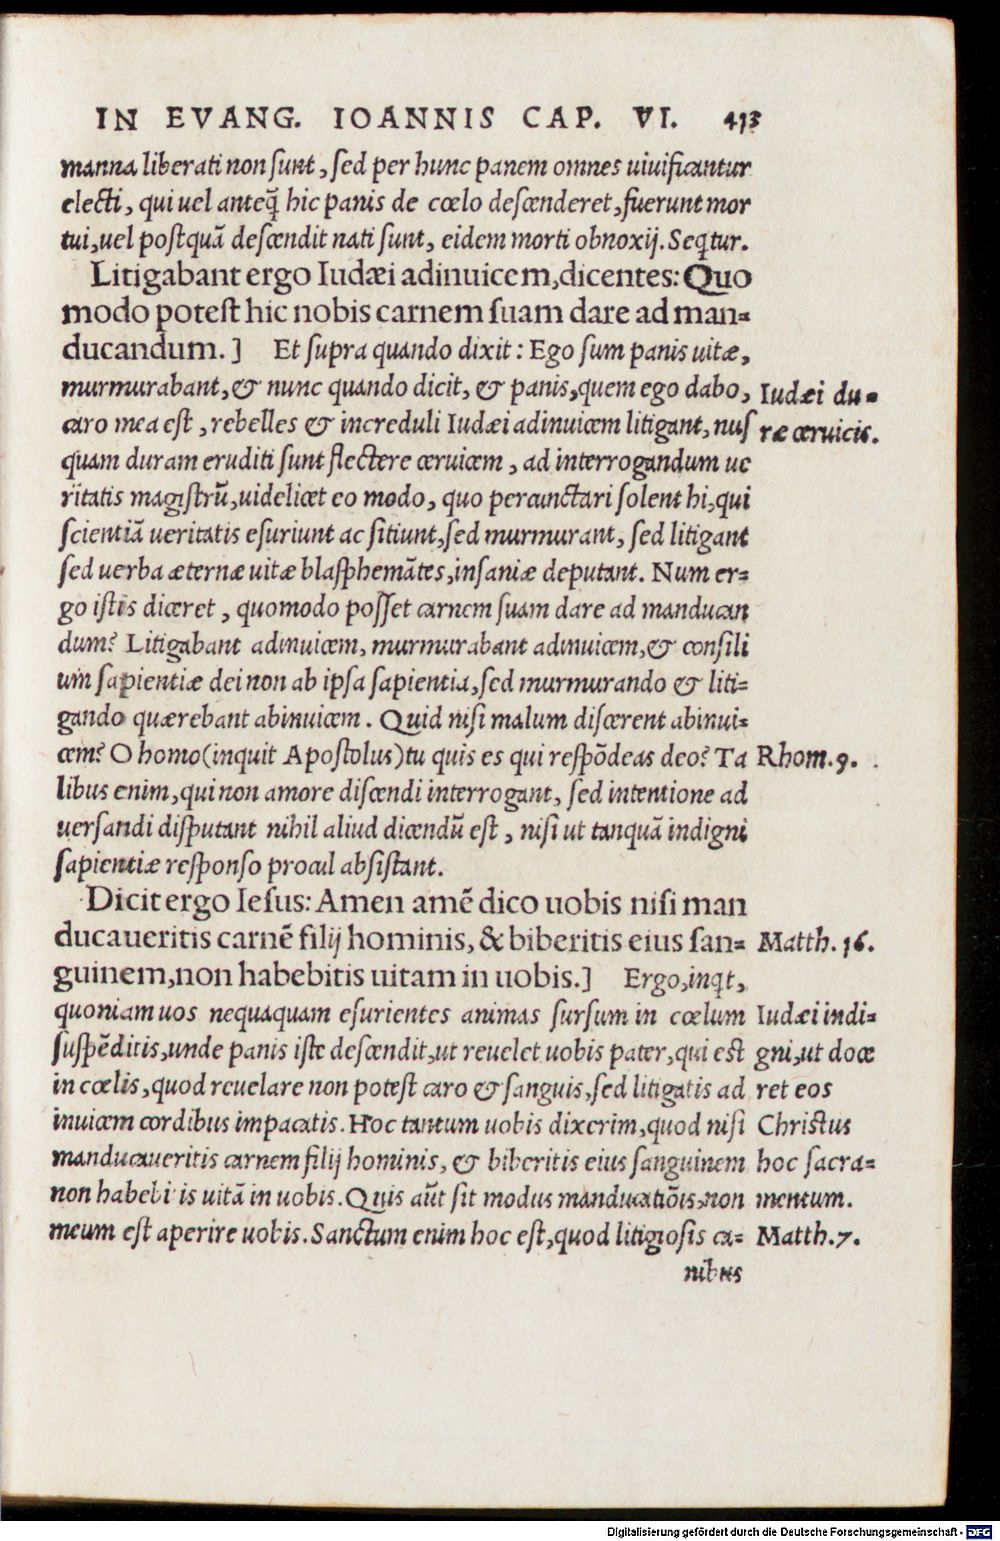 IN EVANG. IOANNIS CAP. VI. 413
manna liberati non sunt, sed per hunc panem omnes uiuificantur
electi, qui uel anteq̃ hic panis de cœlo descenderet, fuerunt mor
tui, uel postquã descendit nati sunt, eidem morti obnoxij. Seq̃tur.
Litigabant ergo Iudæi adinuicem, dicentes: Quo
modo potest hic nobis carnem suam dare ad man=
ducandum.] Et supra quando dixit: Ego sum panis uitæ,
murmurabant, & nunc quando dicit, & panis, quem ego dabo,
caro mea est, rebelles & increduli Iudæi adinuicem litigant, nus
quam duram eruditi sunt flectere ceruicem, ad interrogandum ue
ritatis magistrũ, uidelicet eo modo, quo percunctari solent hi, qui
scientiã ueritatis esuriunt ac sitiunt, sed murmurant, sed litigant
sed uerba æternæ uitæ blasphemãtes, insaniæ deputant. Num er=
go istis diceret, quomodo posset carnem suam dare ad manducan
dum? Litigabant adinuicem, murmurabant adinuicem, & consili
um sapientiæ dei non ab ipsa sapientia, sed murmurando & liti=
gando quærebant abinuicem. Quid nisi malum discerent abinui=
cem? O homo (inquit Apostolus) tu quis es qui respõdeas deo? Ta
libus enim, qui non amore discendi interrogant, sed intentione ad
uersandi disputant nihil aliud dicendũ est, nisi ut tanquã indigni
sapientiæ responso procul absistant.
Dicit ergo Iesus: Amen amẽ dico uobis nisi man
ducaueritis carnẽ filij hominis, & biberitis eius san=
guinem, non habebitis uitam in uobis.] Ergo, inq̃t,
quoniam uos nequaquam esurientes animas sursum in cœlum
suspẽditis, unde panis iste descendit, ut reuelet uobis pater, qui est
in cœlis, quod reuelare non potest caro & sanguis, sed litigatis ad
inuicem cordibus impacatis. Hoc tantum uobis dixerim, quod nisi
manducaueritis carnem filij hominis, & biberitis eius sanguinem
non habebi is uitã in uobis. Quis aũt sit modus manducatiõis, non
meum est aperire uobis. Sanctum enim hoc est, quod litigiosis ca=
nibus
Iudæi du=
ræ ceruicis.
Rhom. 9.
Matth. 16.
Iudæi indi=
gni, ut doce
ret eos
Christus
hoc sacra=
mentum.
Matth. 7.
Digitalisierung gefördert durch die Deutsche Forschungsgemeinschaft - DFG